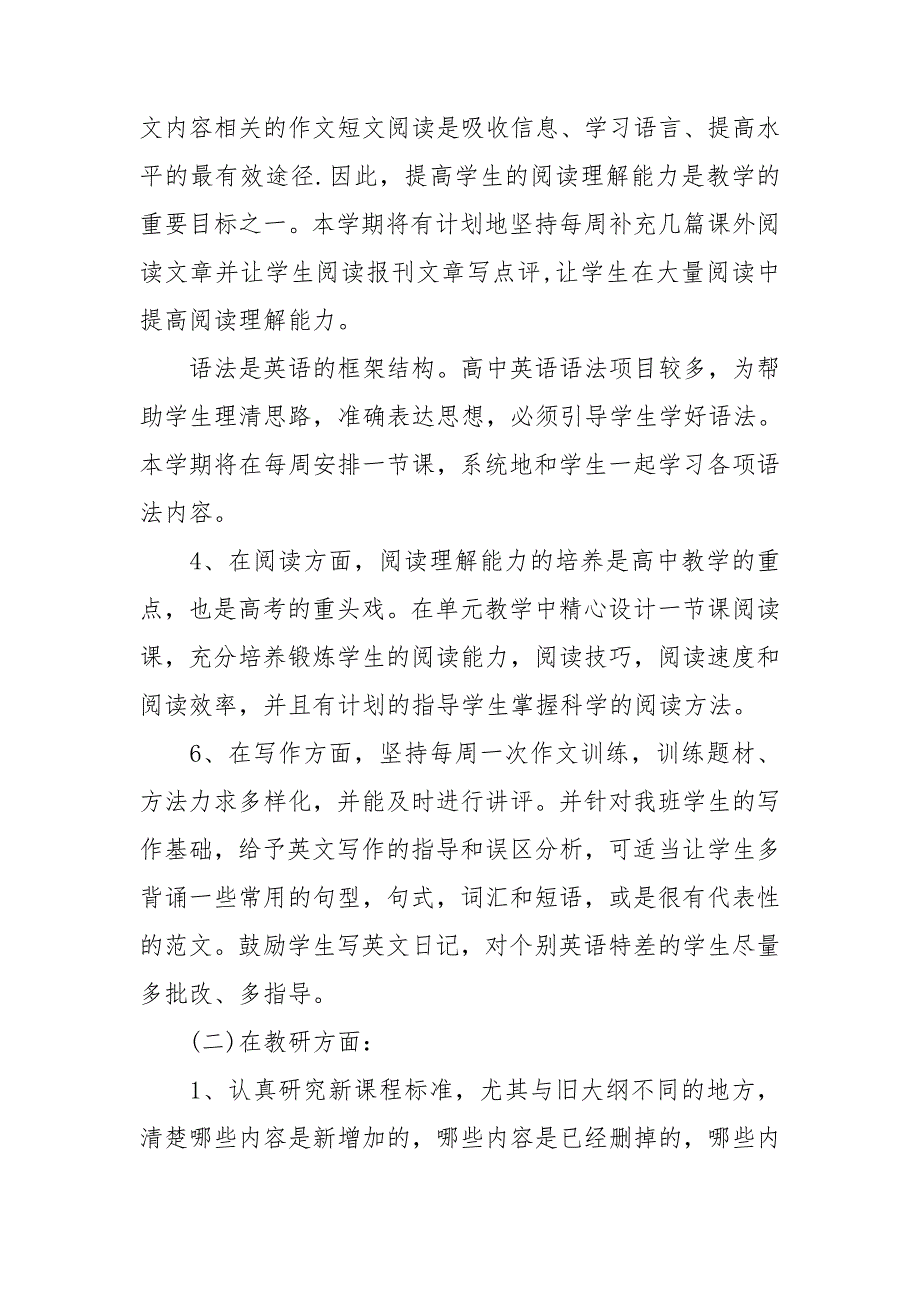 文内容相关的作文短文阅读是吸收信息、学习语言、提高水
平的最有效途径.因此，提高学生的阅读理解能力是教学的
重要目标之一。本学期将有计划地坚持每周补充几篇课外阅
读文章并让学生阅读报刊文章写点评,让学生在大量阅读中
提高阅读理解能力。
语法是英语的框架结构。高中英语语法项目较多，为帮
助学生理清思路，准确表达思想，必须引导学生学好语法。
本学期将在每周安排一节课，系统地和学生一起学习各项语
法内容。
4、在阅读方面，阅读理解能力的培养是高中教学的重
点，也是高考的重头戏。在单元教学中精心设计一节课阅读
课，充分培养锻炼学生的阅读能力，阅读技巧，阅读速度和
阅读效率，并且有计划的指导学生掌握科学的阅读方法。
6、在写作方面，坚持每周一次作文训练，训练题材、
方法力求多样化，并能及时进行讲评。并针对我班学生的写
作基础，给予英文写作的指导和误区分析，可适当让学生多
背诵一些常用的句型，句式，词汇和短语，或是很有代表性
的范文。鼓励学生写英文日记，对个别英语特差的学生尽量
多批改、多指导。
(二)在教研方面：
1、认真研究新课程标准，尤其与旧大纲不同的地方，
清楚哪些内容是新增加的，哪些内容是已经删掉的，哪些内